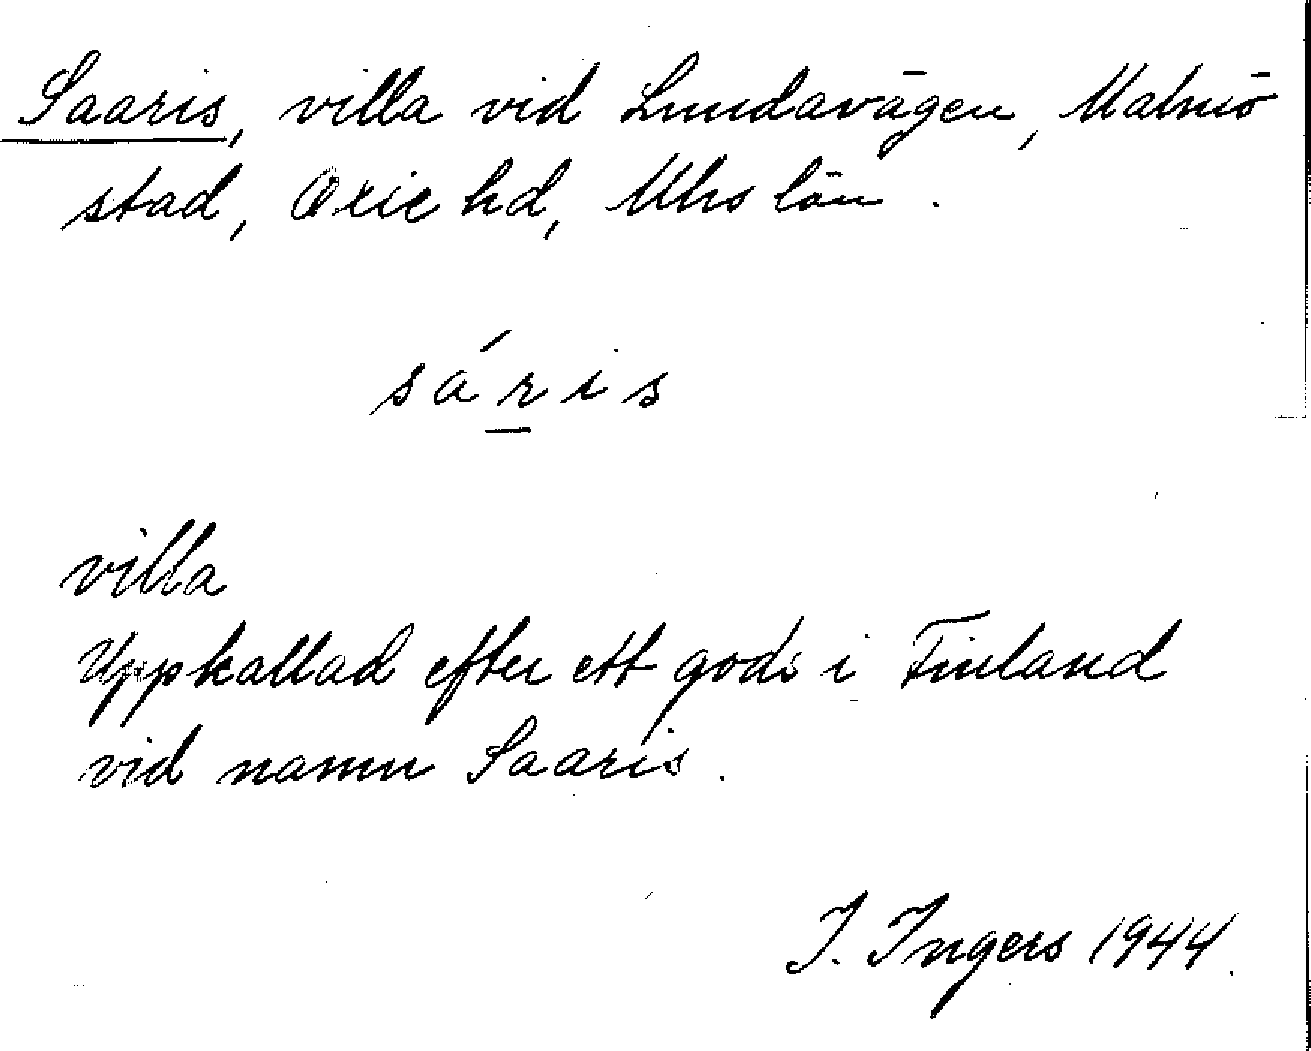 Saaris, villa vid Lundavägen, Malmö
stad, Oxie hd, Mhs län.
sáris
villa
Uppkallad efter ett gods i Finland
vid namn Saaris.
I. Ingers 1944.